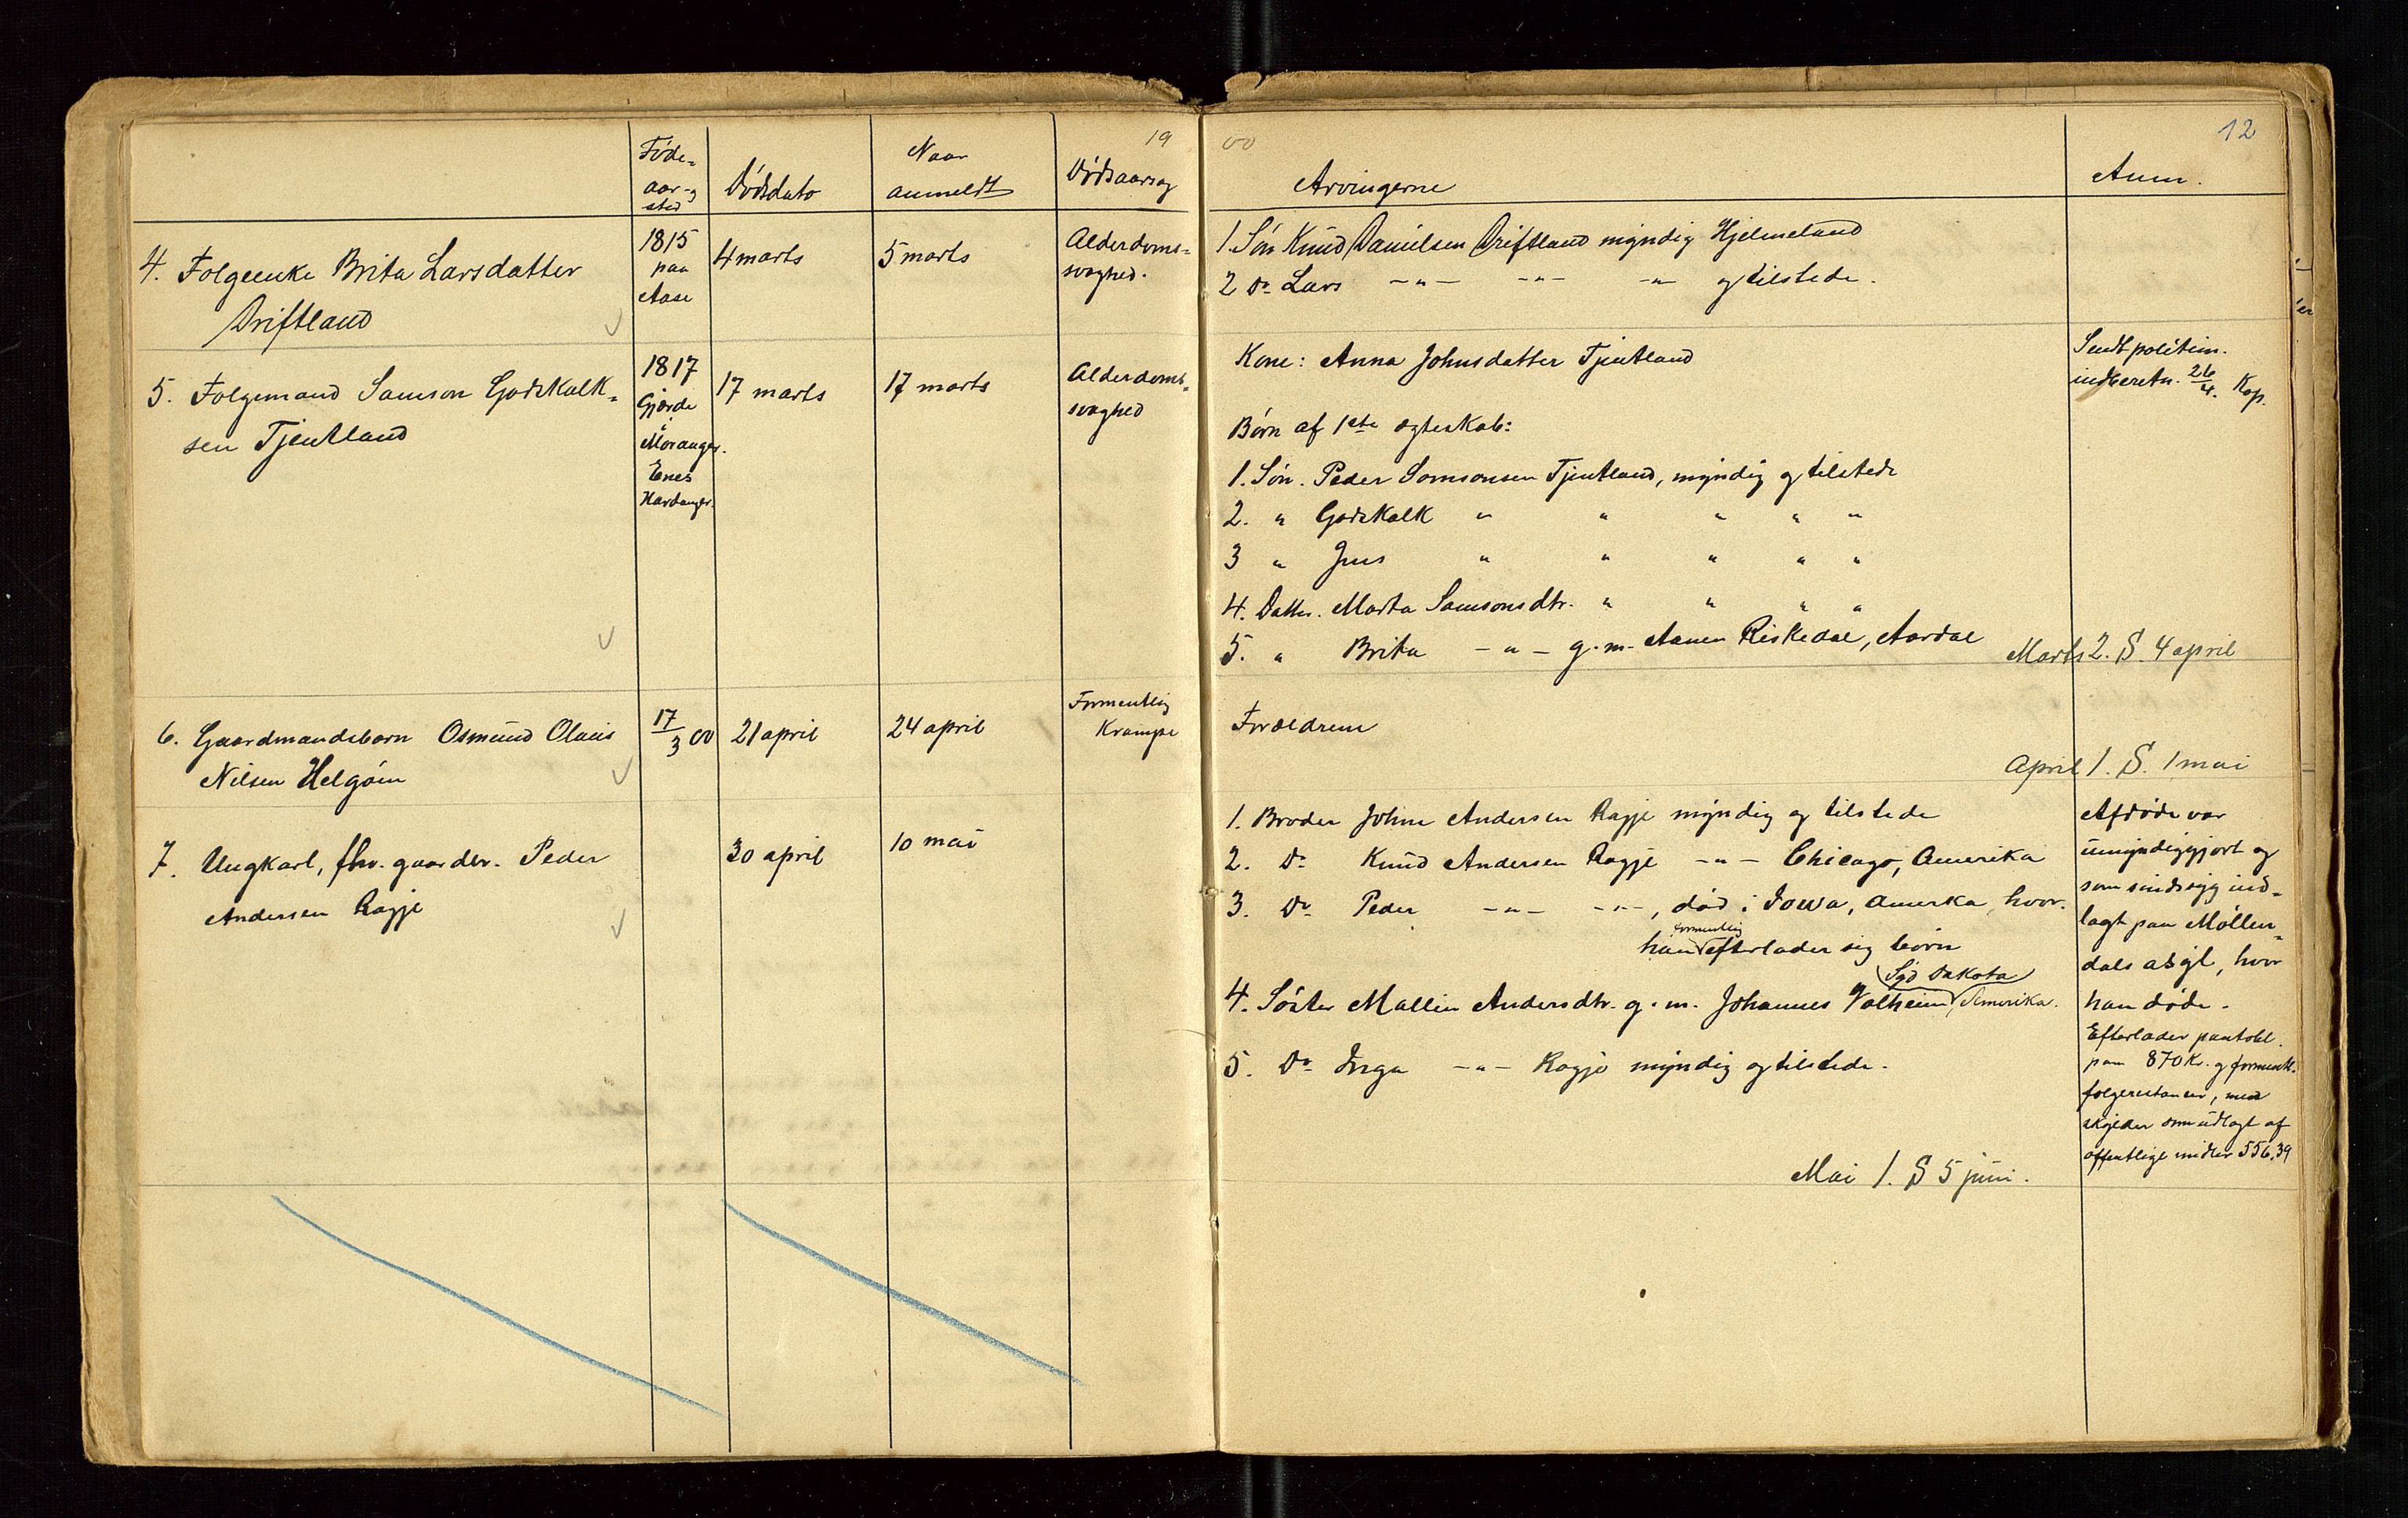 19 00
12
Føde-
aar og
sted
Dødsdato
Naar
anmeldt
Dødsaarsag
Arvingerne
Anm.
4. Folgeenke Brita Larsdatter
Driftland
1815
paa
Aase
4 marts
5 marts
Alderdoms-
svaghed.
1. Søn Knud Danielsen Driftland myndig Hjelmeland
2 Do Lars -"- -"- -"- og tilstede.
5. Folgemand Samson Godskalk-
sen Tjentland
1817
Gjærde
i
Moranger.
Enes
Hardanger.
17 marts
17 marts
Alderdoms-
svaghed
Kone: Anna Johnsdatter Tjentland
Børn af 1ste ægteskab:
1. Søn. Peder Samsonsen Tjentland, myndig og tilstede
2. " Godskalk " " " " "
3 " Jens " " " " "
4. Datter. Marta Samsonsdtr. " " " "
5. " Brita -"- g.m. Aanen Riskedal, Aardal
Sendt politim.
indberetn. 26/4. Kop.
Marts 2. S. 4 april
6. Gaardmandsbarn Osmund Olaus
Nilsen Helgøen
17/3 00
21 april
24 april
Formentlig
Krampe
Forældrene
April 1. S. 1 mai
7. Ungkarl, fhv. gaardbr. Peder
Andersen Ragje
30 april
10 mai
1. Broder Johne Andersen Ragje myndig og tilstede
2. Do Knud Andersen Ragje -"- Chicago, Amerika
3. Do Peder -"- -"-, død i Iowa, Amerika, hvor
formentlig
han efterlader sig børn
Syd Dakota
4. Søster Mallin Andersdtr. g.m. Johannes Valheim Amerika.
5. Do Inga -"- Ragje myndig og tilstede.
Afdøde var
umyndiggjort og
som sindssyg ind-
lagt paa Møllen-
dals asyl, hvor
han døde.
Efterlader pantobl.
paa 870 Kr. og formentl.
folgerestancer, med
skylder som udlagt af
offentlige midler 556,39
Mai 1. S 5 juni.